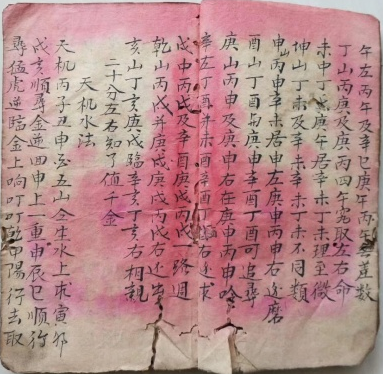 午左丙午及辛巳庚午丙午無差数
丁山丙庚及庚丙四午宛取左右命
未中丁未庚午居辛未丁未理至微
坤山丁未及辛未辛未丁未不同類
申山丙申辛未居申左庚申丙申右逢磨
酉山丁酉与庚申辛酉丁酉可追尋
庚山丙申及庚申右在庚申丙申吟
辛左丁酉并未酉辛酉丁酉右逢求
戌中丙戌及辛酉庚戌丙戌一路週
乾山丙戌并庚戌庚戌丙戌右还生
亥山丁亥庚戌臨辛亥丁亥右相親
二十分左右知了值千金
天机水法
天机丙子丑申亥五山金生水上求寅卯
戌亥順尋金逆四申上一重申辰巳順行
尋猛虎逆臨金上响叮叮乾甲陽行去取